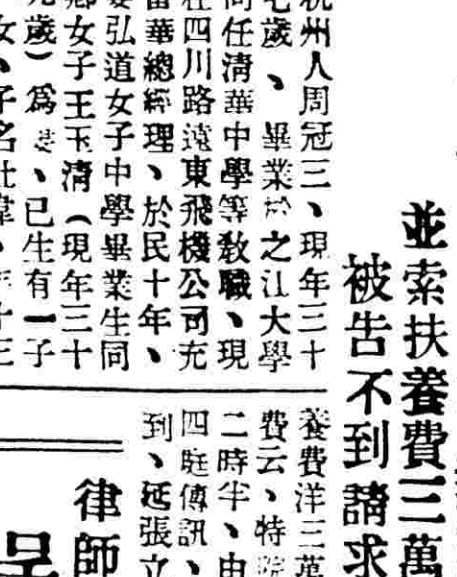 並索扶養費三萬
被告不到請求
杭州人周冠三、現年三十
七歲、畢業於之江大學
尚任清華中學等敎職、現
在四川路遠東飛機公司充
當華總經理、於民十年、
娶弘道女子中學畢業生同
鄉女子王玉清（現年三十
九歲）爲妻、已生有一子
女、子名
養費洋三萬
費云、特院
二時半、由
四庭傳訊、
到、延張立
律師